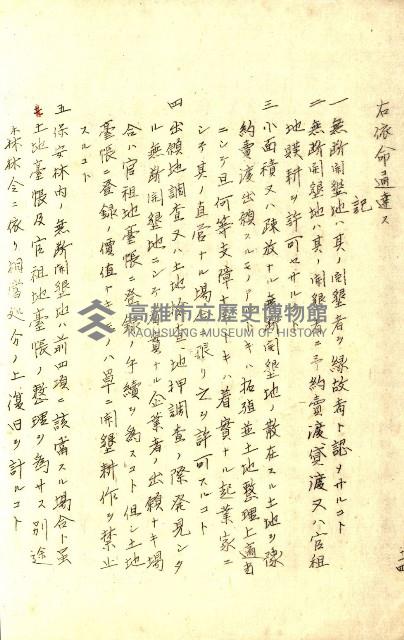 右依命通達ス
記
一 無断開墾地ハ其ノ開墾者ヲ縁故者ト認メサルコト
二 無断開墾地ハ其ノ開墾者ニ予約売渡貸渡又ハ官租
地贌耕ヲ許可セサルコト
三 小面積又ハ疎放ナル無断開墾地ノ散在スル土地ヲ豫
約売渡出願スルモノアルトキハ拓殖並土地整理上適当
ニシテ且何等支障ナキトキハ着実ナル起業家ニ
シテ其ノ直営ナル場合ニ限リ之ヲ許可スルコト
四 出願地調査又ハ土地
地押調査ノ際発見シタ
ル無断開墾地ニシテ
ナル企業者ノ出願ナキ場
合ハ官租地臺帳ニ登録ノ手続ヲ為スコト但シ土地
臺帳ニ登録ノ價値ナキモノハ単ニ開墾耕作ヲ禁止
スルコト
五 保安林内ノ無断開墾地ハ前四項ニ該當スル場合ト雖
土地臺帳及官租地臺帳ノ整理ヲ為サス別途
森林令ニ依リ相當処分ノ上復旧ヲ計ルコト
高雄市立歷史博物館
KAOHSIUNG MUSEUM OF HISTORY